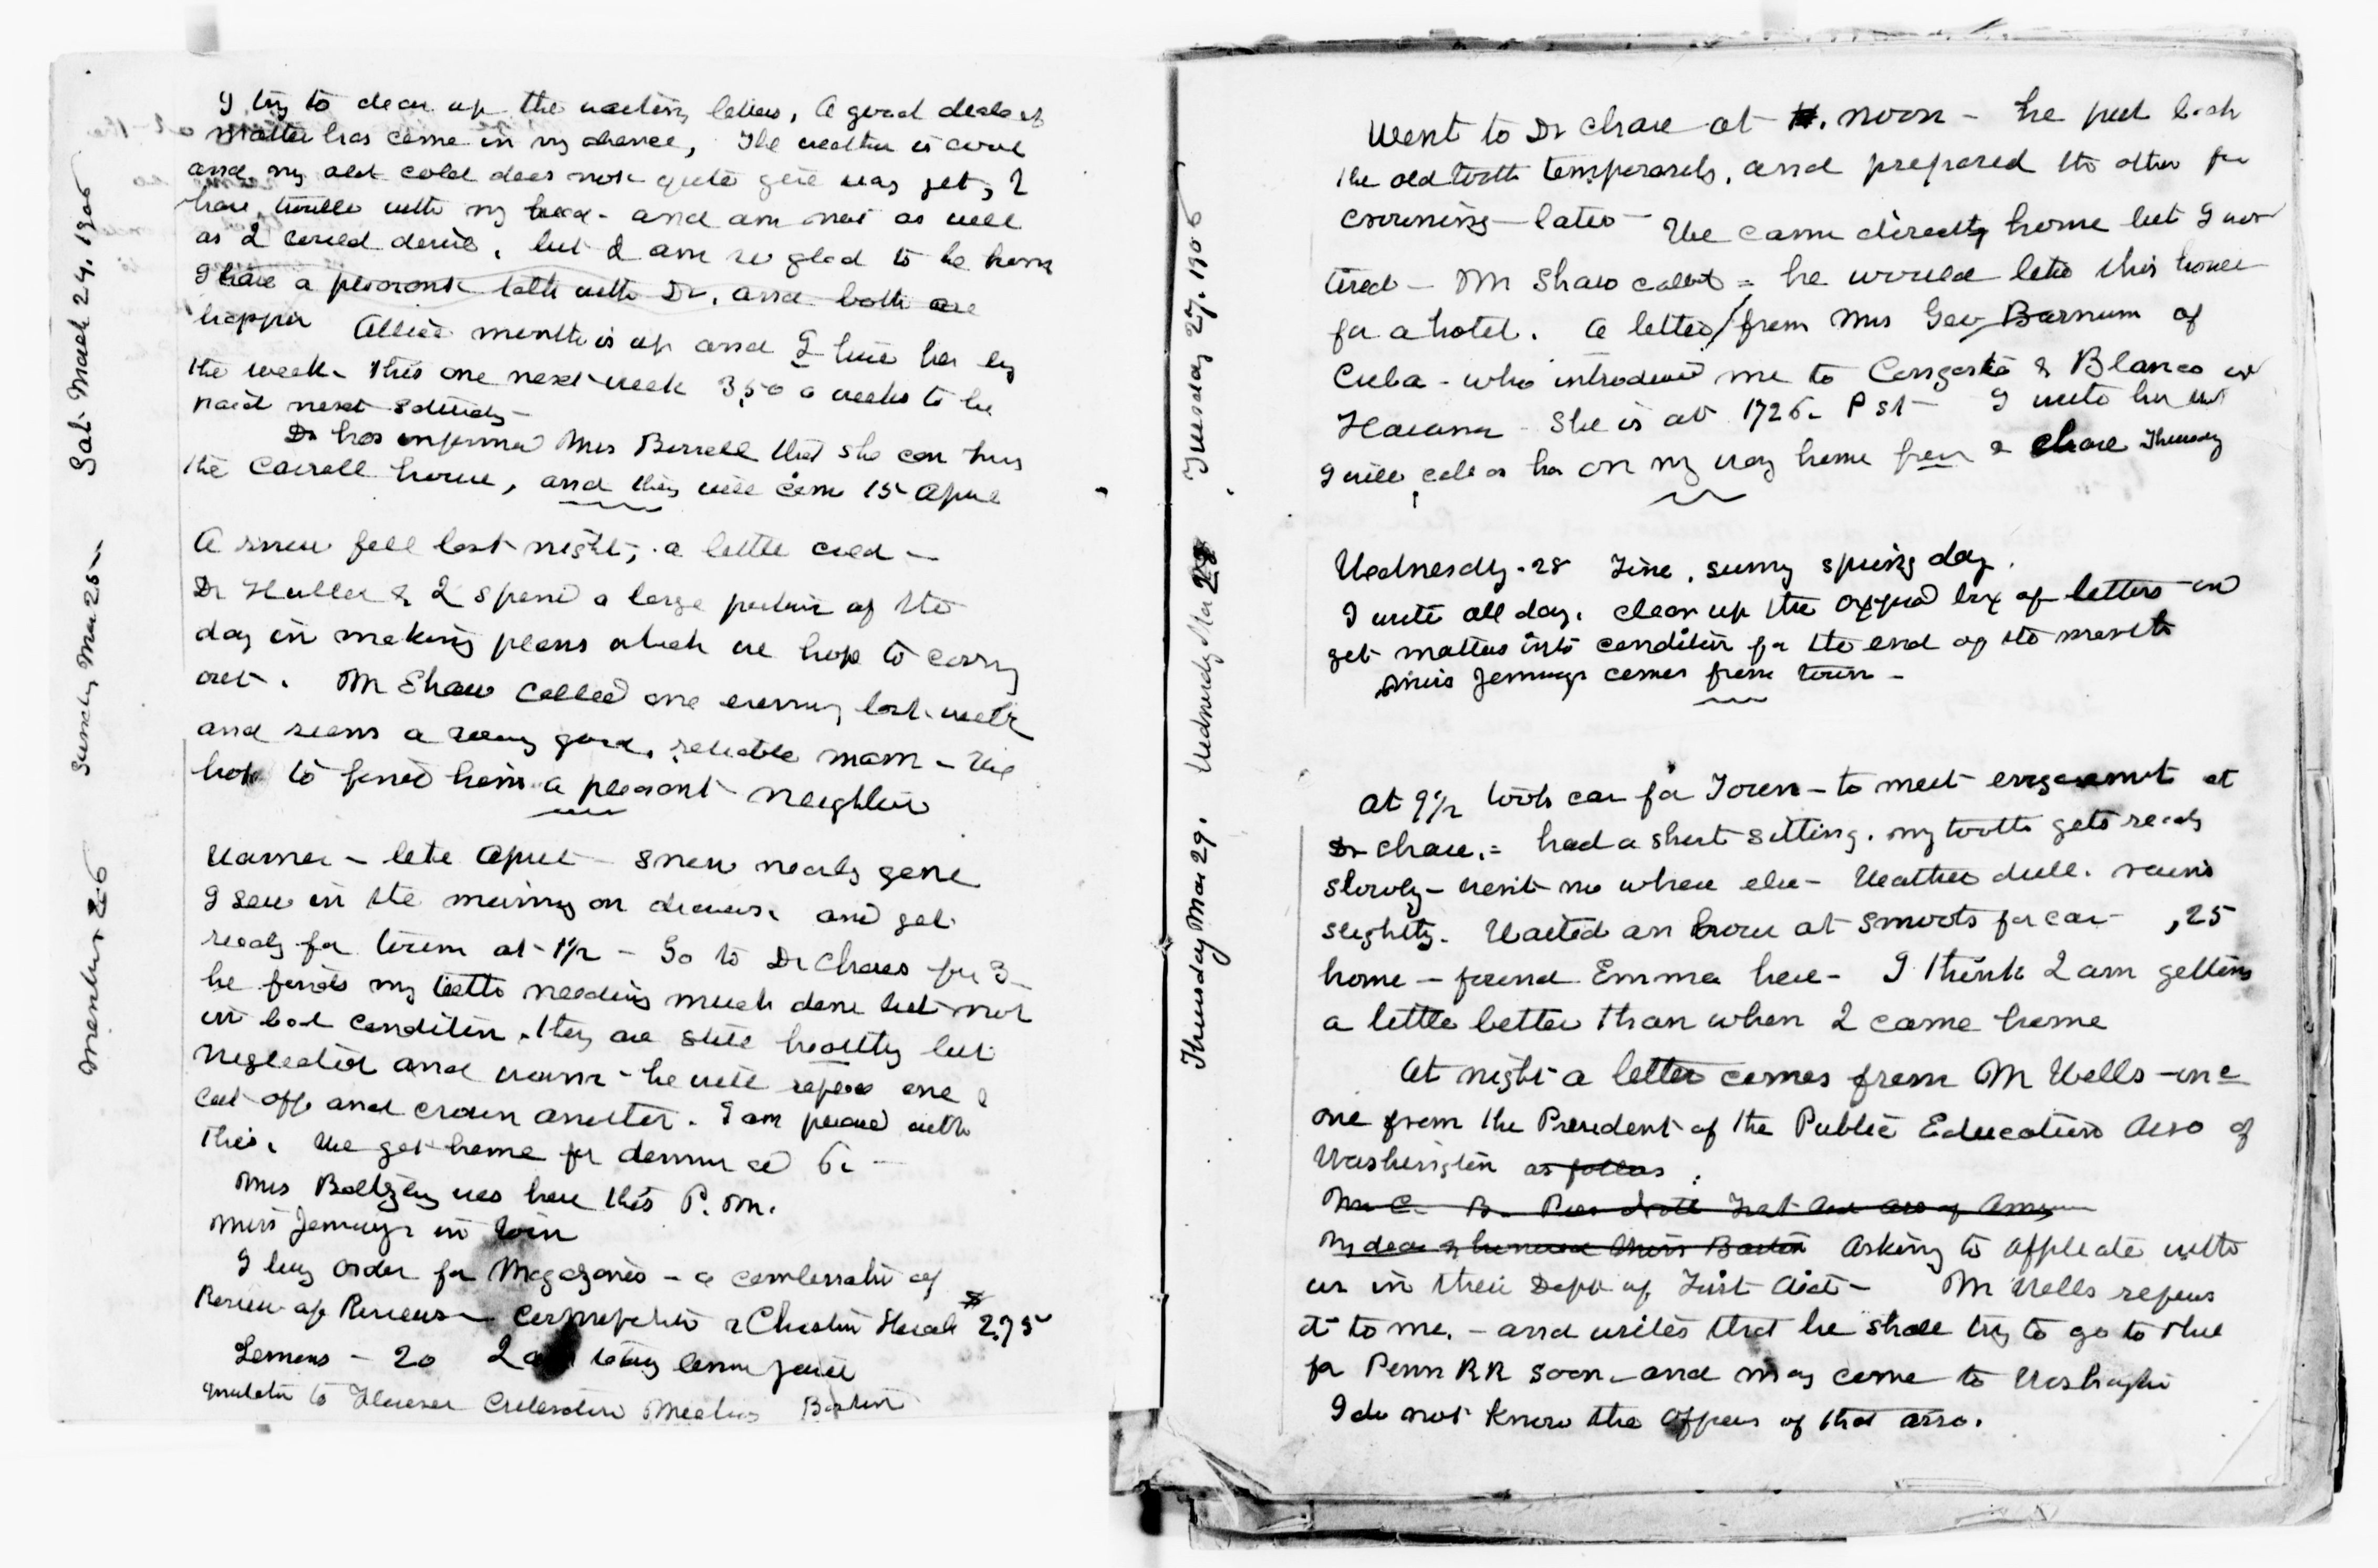 Sat. March 24. 1906
I try to clear up the waiting letters, A good deal of
matter has come in my absence, The weather is cool
and my old cold does not quite give way yet, I
have trouble with my head - and am not as well
as I could desire, but I am so glad to be home
I have a pleasant talk with Dr. and both are
happier Allie's month is up and I hire her by
the week - This one next week 3,50 a week to be
paid next Saturday -
Dr has informed Mrs Berrell that she can have
the Carroll house, and they will come 15 April
Sunday Mar 25 -
A snow fell last night, a little cold -
Dr Hubbell & I spend a large portion of the
day in making plans which we hope to carry
out. Mr Shaw called one evening last week
and seems a very good, reliable man - We
hope to find him a pleasant neighbor
Monday 26
Warmer - like April - snow nearly gone
I sew in the morning on drawers and get
ready for town at 1 1/2 - Go to Dr Chases for 3 -
he finds my teeth needing much done but not
in bad condition, they are still healthy but
neglected and worn - he will repair one &
cut off and crown another. I am pleased with
this. We get home for dinner at 6. -
Mrs Boltzley was here this P. M.
Miss Jennings in town
I buy order for Magazines - a combination of
Review of Reviews - Cosmopolitan & Christian Herald $2.75
Lemons - 20 I am taking lemon juice
to Havana Cuba Boston
Tuesday 27. 1906
Went to Dr Chase at noon - he put back
the old tooth temporarily, and prepared the other for
crowning - later - We came directly home but I was
tired - Mr Shaw called = he would like this house
for a hotel. A letter from Mrs Geo Barnum of
Cuba - who introduced me to Congosto & Blanco in
Havana - She is at 1726 - P St - I write her that
I will call on her on my way home from Dr Chase Thursday
Wednesdy Mar 28
Wednesdy - 28 Fine, sunny spring day.
I write all day. Clear up the Oxford box of letters - and
get matters into condition for the end of the month
Miss Jennings comes from town -
Thursday Mar 29.
At 9 1/2 took car for Town - to meet engagement at
Dr Chase, = had a short sitting. my tooth gets ready
slowly - went no where else - Weather dull. rains
slightly. Waited an hour at Smoots for car - ,25
home - found Emma here - I think I am getting
a little better than when I came home
At night a letter comes from Mr Wells - inc
one from the President of the Public Education Asso of
Washington as follows :
Miss C. B. President First Aid Asso of America
My dear & honored Miss Barton Asking to affiliate with
us in their Dept of First Aid - Mr Wells refers
it to me. - and writes that he shall try to go to Phil
for Penn RR soon - and may come to Washington
I do not know the officers of that asso.